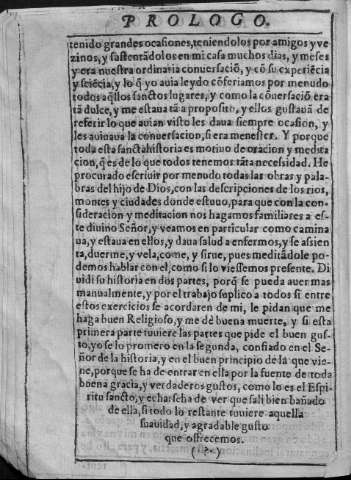 PROLOGO.
tenido grandes ocasiones, teniendolos por amigos y ve
zinos, y sustentādolos en mi casa muchos dias, y meses
y era nuestra ordinaria conuersaciō, y cō su experiēcia
y sciēcia, y lo q̄ yo auia leydo cōferiamos por menudo
todos aq̄llos sanctos lugares, y como la cōuersaciō era
tā dulce, y me estaua tā a proposito, y ellos gustauā de
referir lo que auian visto les daua siempre ocasion, y
les auiuaua la conuersacion, si era menester. Y porque
toda esta sanctahistoria es motiuo de oracion y medita
cion, q̄ es de lo que todos tenemos tāta necessidad. He
procurado escriuir por menudo todas las obras y pala-
bras del hijo de Dios, con las descripciones de los rios,
montes y ciudades donde estuuo, para que con la con-
sideracion y meditacion nos hagamos familiares a es-
te diuino Señor, y veamos en particular como camina
ua, y estaua en ellos, y daua salud a enfermos, y se assien
ta, duerme, y vela, come, y sirue, pues meditādole po-
demos hablar con el, como si lo viessemos presente. Di
uidi su historia en dos partes, porq̄ se pueda auer mas
manualmente, y por el trabajo suplico a todos si entre
estos exercicios se acordaren de mi, le pidan que me
haga buen Religioso, y me dè buena muerte, y si esta
primera parte tuuiere las partes que pide el buen gus-
to, yo se lo promero en la segunda, confiado en el Se-
ñor de la historia, y en el buen principio de la que vie-
ne, porque se ha de entrar en ella por la fuente de toda
buena gracia, y verdaderos gustos, como lo es el Espi-
ritu sancto, y echarseha de ver que sali bien bañado
de ella, si todo lo restante tuuiere aquella
suauidad, y agradable gusto
que ofrecemos.